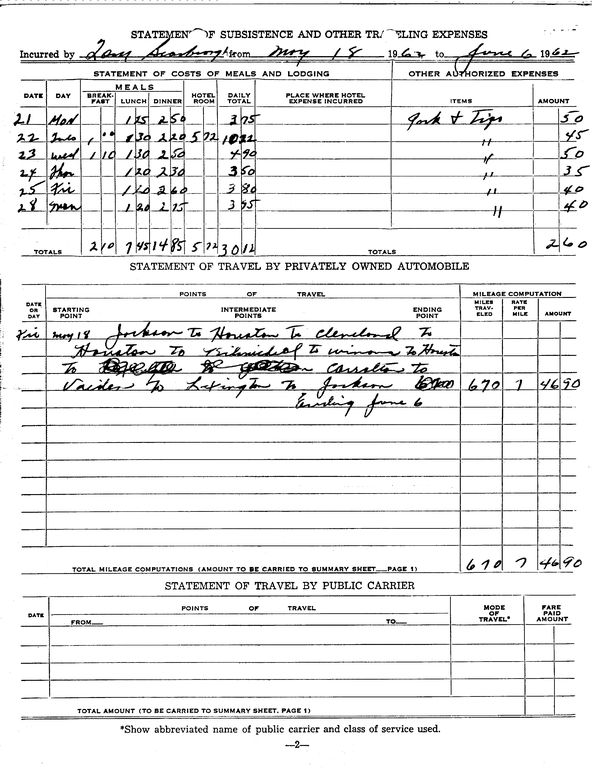 STATEMENT OF SUBSISTENCE AND OTHER TRAVELING EXPENSES
Incurred by from May 18 1962 to June 6 1962
STATEMENT OF COSTS OF MEALS AND LODGING OTHER AUTHORIZED EXPENSES
DATE DAY MEALS BREAK-FAST LUNCH DINNER HOTEL ROOM DAILY TOTAL PLACE WHERE HOTEL EXPENSE INCURRED ITEMS AMOUNT
21 Mon 1 25 2 50 3 75 Park & Tips 50
22 Tues 1 00 1 30 2 20 5 72 10 22 " 45
23 Wed 1 10 1 30 2 50 4 90 " 50
24 Thur 1 20 2 30 3 50 " 35
25 Fri 1 20 2 60 3 80 " 40
28 Mon 1 20 2 75 3 95 " 40
TOTALS 2 10 7 45 14 85 5 72 30 12 TOTALS 2 60
STATEMENT OF TRAVEL BY PRIVATELY OWNED AUTOMOBILE
DATE OR DAY POINTS OF TRAVEL MILEAGE COMPUTATION
STARTING POINT INTERMEDIATE POINTS ENDING POINT MILES TRAV-ELED RATE PER MILE AMOUNT
Fri May 18 Jackson to Houston to Cleveland to
Houston to to Winona to Houston
to Carrollton to
Vaiden to Lexington to Jackson 670 7 46 90
Ending June 6
TOTAL MILEAGE COMPUTATIONS (AMOUNT TO BE CARRIED TO SUMMARY SHEET PAGE 1) 670 7 46 90
STATEMENT OF TRAVEL BY PUBLIC CARRIER
DATE POINTS OF TRAVEL MODE OF TRAVEL* FARE PAID AMOUNT
FROM TO
TOTAL AMOUNT (TO BE CARRIED TO SUMMARY SHEET, PAGE 1)
*Show abbreviated name of public carrier and class of service used.
—2—